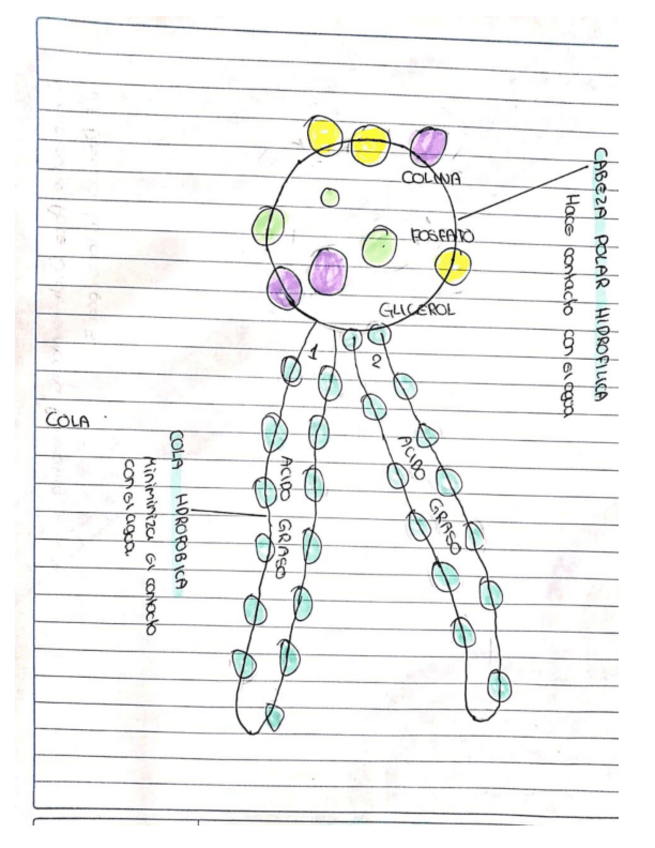 COLINA
FOSFATO
GLICEROL
CABEZA POLAR HIDROFILICA
Hace contacto con el agua
1
2
ACIDO GRASO
ACIDO GRASO
COLA
COLA HDROFOBICA
Miniminiza el contacto
con el agua.